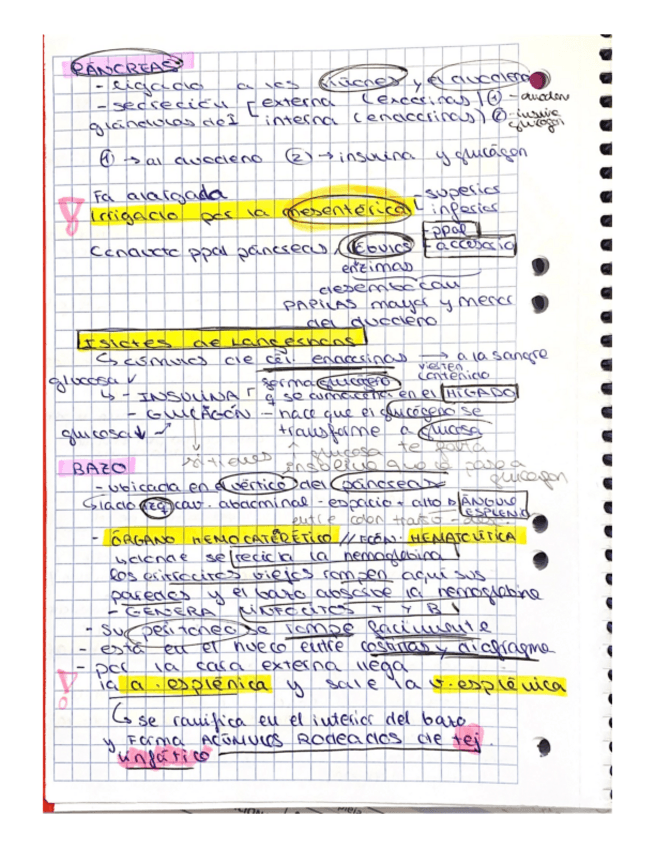 PÁNCREAS
- ligado a los riñones y el duodeno
- secreción [ externa (exocrinas) ① - duoden
glándulas de I interna (endocrinas) ② - insulina glucagon
① → al duodeno ② → insulina y glucágon
Fa alargada
! Irrigado por la mesentérica [ superior
inferior
Conducto ppal páncreas, - ppal
- accesorio
enzimas
desembocan
PAPILAS mayor y menor
del duodeno
Islotes de Langerhans
↳ cúmulos de cél. endocrinas → a la sangre
vierten contenido
glucosa
↳ - INSULINA forma glucógeno
q se almacena en el HÍGADO
- GLUCAGÓN - hace que el glucógeno se
glucosa ↓ transforme a glucosa
si tienes ↑ glucosa te falta
insulina que la pase a
glucagon
BAZO
- ubicada en el vértice del páncreas
↳ lado izq cav. abdominal - espacio + alto ÁNGULO ESPLÉNICO
entre colon transv - desc.
- ÓRGANO HEMOCATERÉTICO // FCÓN. HEMATOLÍTICA
donde se recicla la hemoglobina
los eritrocitos viejos rompen aquí sus
paredes y el bazo absorbe la hemoglobina
- GENERA LINFOCITOS T Y B
- Su peritoneo se rompe facilmente
- está en el hueco entre costillas y diafragma
- por la cara externa llega
! la a. esplénica y sale la v. esplénica
↳ se ramifica en el interior del bazo
y Forma ACÚMULOS RODEADOS de tej.
linfático